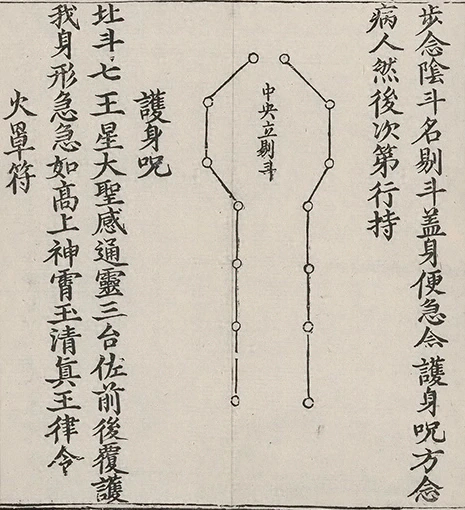 步念陰斗名剔斗盖身便急念護身呪方念
病人然後次第行持
中央立剔斗
護身呪
北斗七王星大聖感通靈三台佐前後覆護
我身形急急如髙上神霄玉清真王律令
火罩符